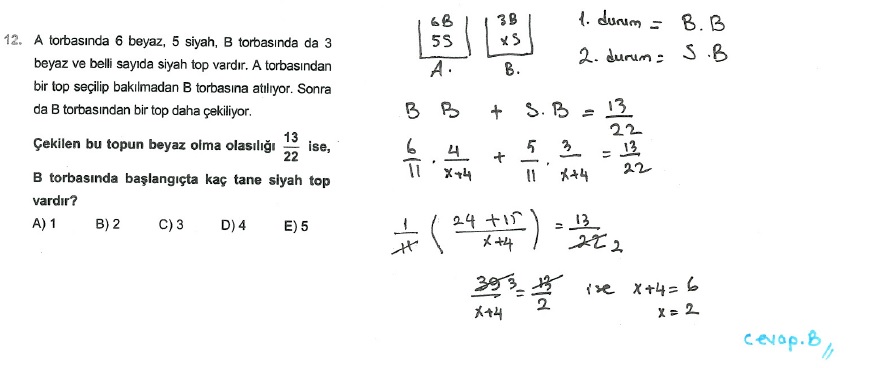 12. A torbasında 6 beyaz, 5 siyah, B torbasında da 3
beyaz ve belli sayıda siyah top vardır. A torbasından
bir top seçilip bakılmadan B torbasına atılıyor. Sonra
da B torbasından bir top daha çekiliyor.
Çekilen bu topun beyaz olma olasılığı 13/22 ise,
B torbasında başlangıçta kaç tane siyah top
vardır?
A) 1 B) 2 C) 3 D) 4 E) 5
6B 3B
5S xS
A. B.
1. durum = B.B
2. durum = S.B
B B + S.B = 13/22
6/11 . 4/x+4 + 5/11 . 3/x+4 = 13/22
1/11 ( 24+15/x+4 ) = 13/22 2
39 3/x+4 = 13/2 ise x+4=6
x=2
cevap.B //